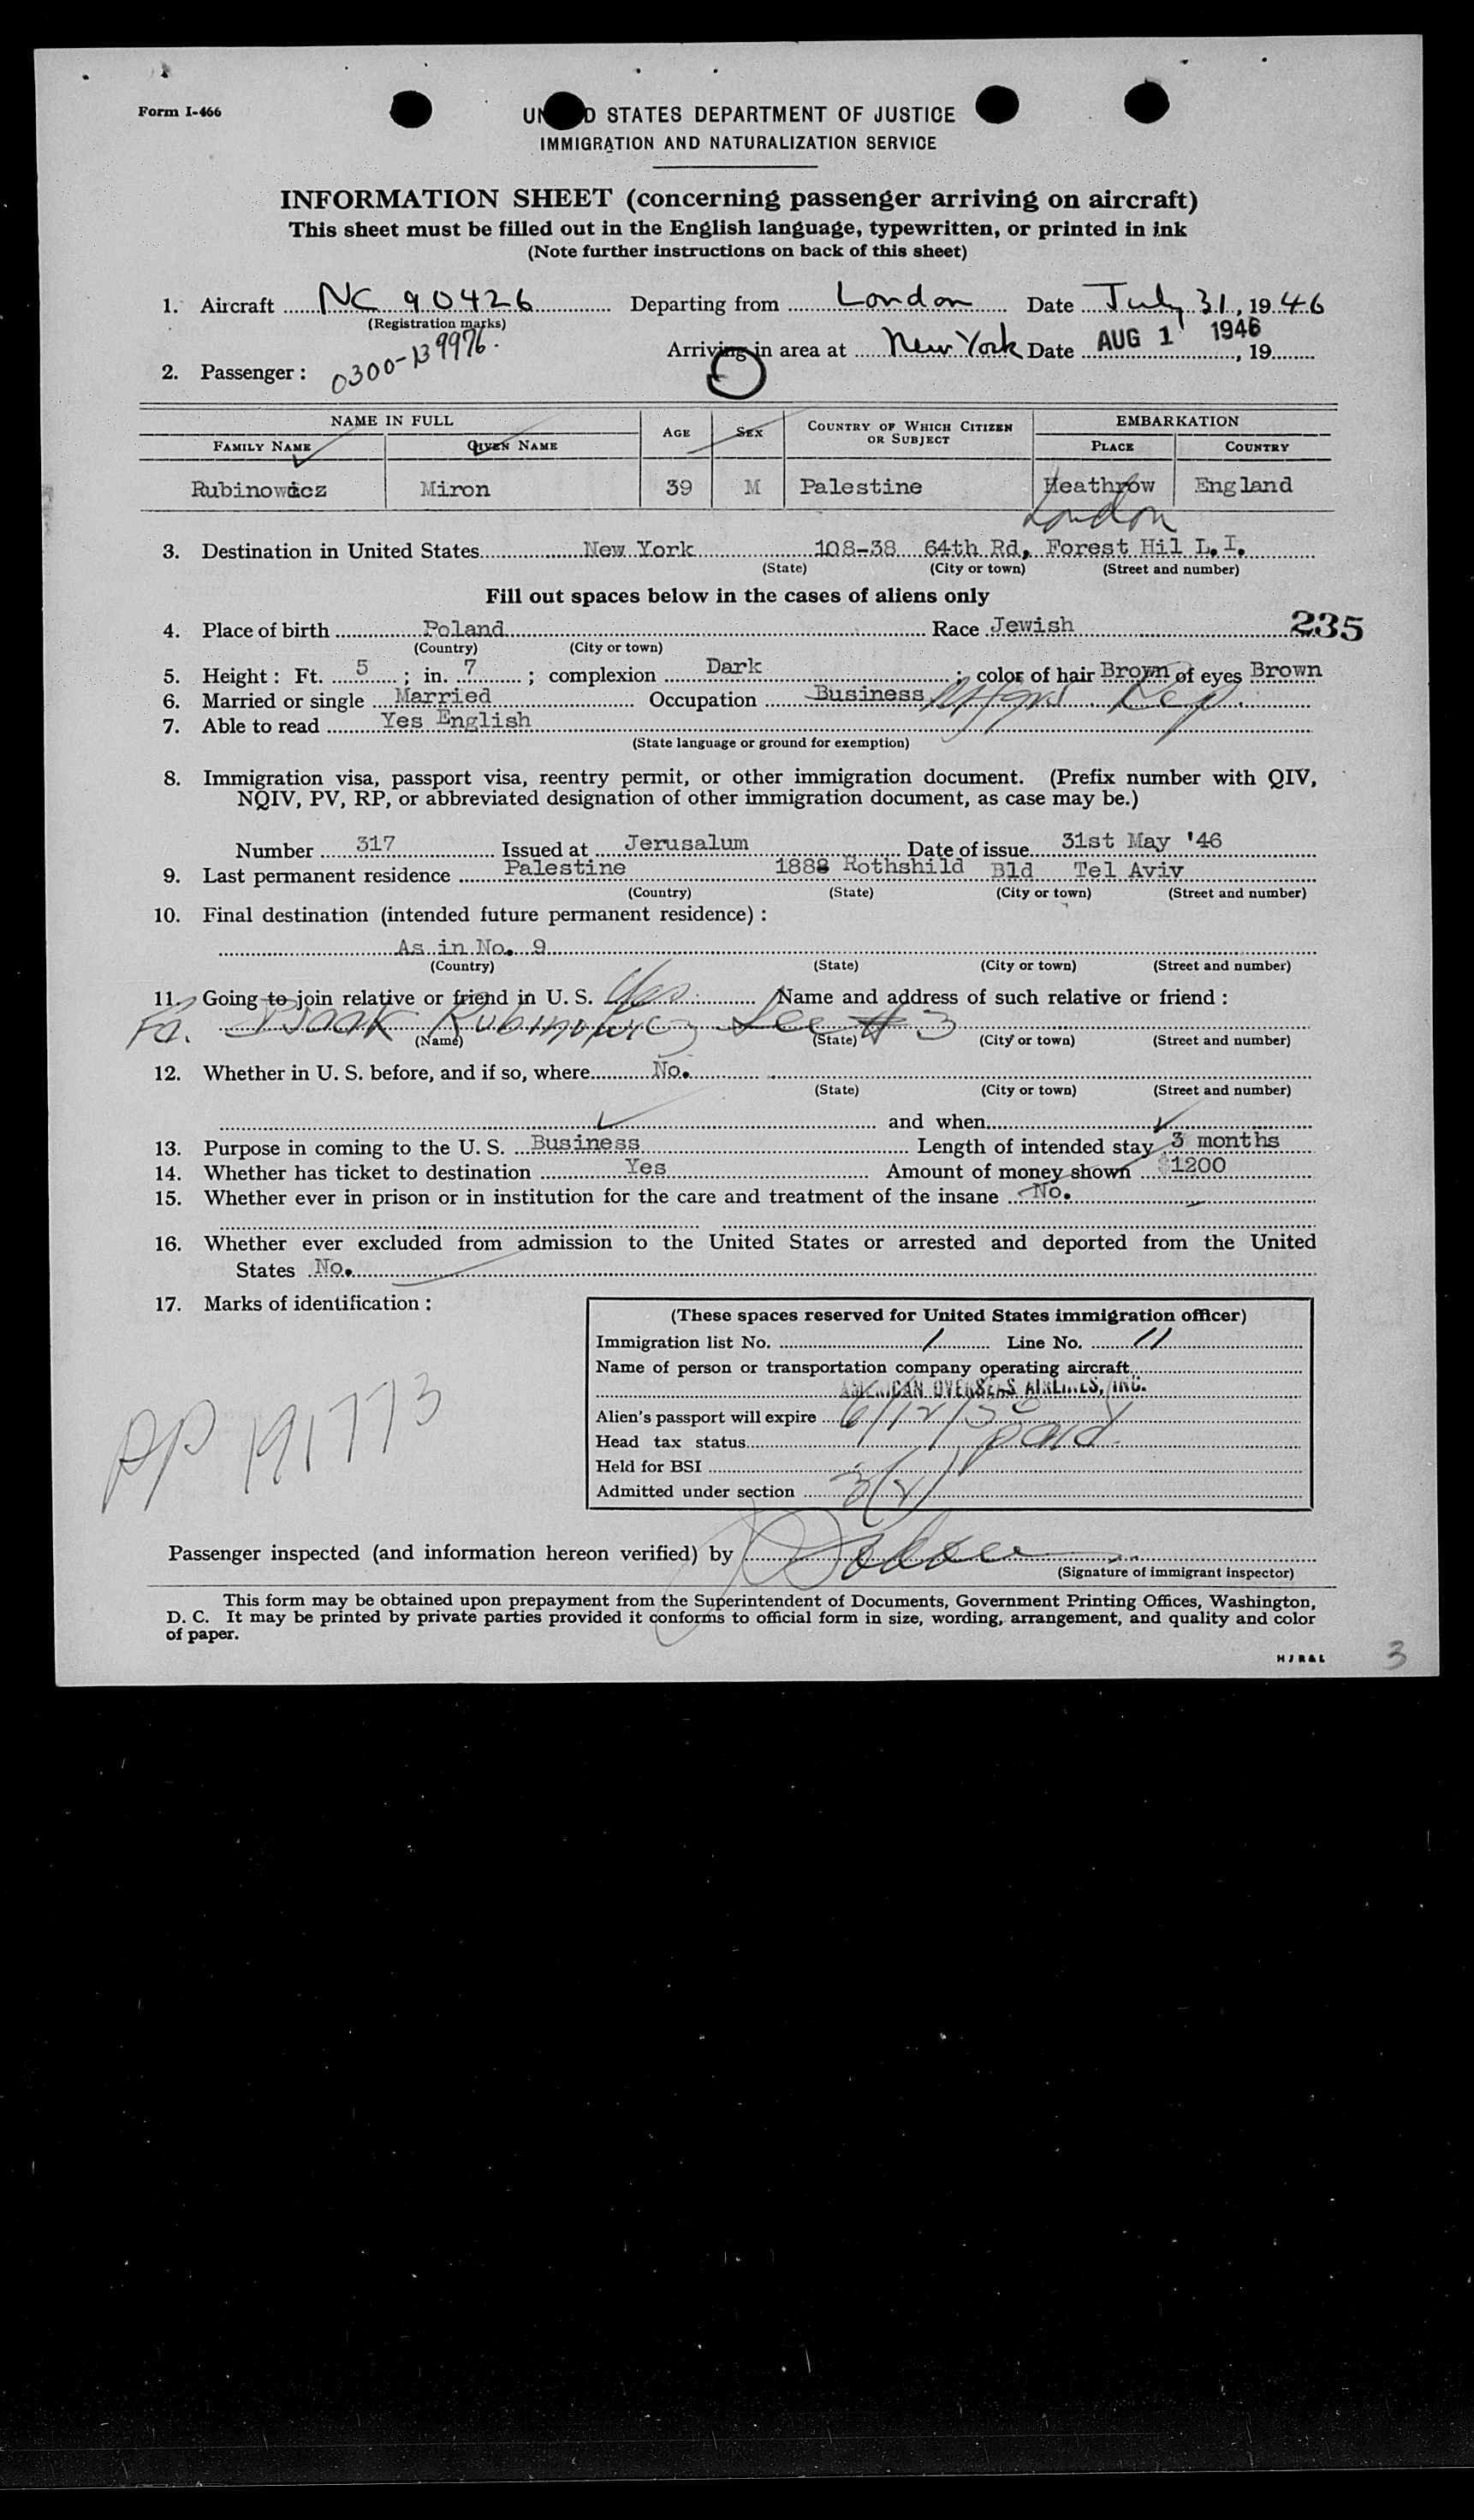 Form I-466
UNITED STATES DEPARTMENT OF JUSTICE
IMMIGRATION AND NATURALIZATION SERVICE
INFORMATION SHEET (concerning passenger arriving on aircraft)
This sheet must be filled out in the English language, typewritten, or printed in ink
(Note further instructions on back of this sheet)
1. Aircraft NC 90426 Departing from London Date July 31, 1946
(Registration marks)
Arriving in area at New York Date AUG 1 1946, 19
2. Passenger: 0300-139976.
NAME IN FULL AGE SEX COUNTRY OF WHICH CITIZEN OR SUBJECT EMBARKATION
FAMILY NAME GIVEN NAME PLACE COUNTRY
Rubinowicz Miron 39 M Palestine Heathrow England
London
3. Destination in United States New York 108-38 64th Rd, Forest Hil L.I.
(State) (City or town) (Street and number)
Fill out spaces below in the cases of aliens only
4. Place of birth Poland Race Jewish 235
(Country) (City or town)
5. Height: Ft. 5; in. 7; complexion Dark; color of hair Brown of eyes Brown
6. Married or single Married Occupation Business Mfgrs. Rep.
7. Able to read Yes English
(State language or ground for exemption)
8. Immigration visa, passport visa, reentry permit, or other immigration document. (Prefix number with QIV,
NQIV, PV, RP, or abbreviated designation of other immigration document, as case may be.)
Number 317 Issued at Jerusalum Date of issue 31st May '46
9. Last permanent residence Palestine 1888 Rothshild Bld Tel Aviv
(Country) (State) (City or town) (Street and number)
10. Final destination (intended future permanent residence):
As in No. 9
(Country) (State) (City or town) (Street and number)
11. Going to join relative or friend in U. S. Yes Name and address of such relative or friend:
Fa. Isaak Rubinowicz See #3
(Name) (State) (City or town) (Street and number)
12. Whether in U. S. before, and if so, where No.
(State) (City or town) (Street and number)
and when
13. Purpose in coming to the U. S. Business Length of intended stay 3 months
14. Whether has ticket to destination Yes Amount of money shown $1200
15. Whether ever in prison or in institution for the care and treatment of the insane No.
16. Whether ever excluded from admission to the United States or arrested and deported from the United
States No.
17. Marks of identification:
PP 191773
(These spaces reserved for United States immigration officer)
Immigration list No. 1 Line No. 11
Name of person or transportation company operating aircraft
AMERICAN OVERSEAS AIRLINES, INC.
Alien's passport will expire 6/12/50
Head tax status paid
Held for BSI
Admitted under section 3(2)
Passenger inspected (and information hereon verified) by
(Signature of immigrant inspector)
This form may be obtained upon prepayment from the Superintendent of Documents, Government Printing Offices, Washington,
D. C. It may be printed by private parties provided it conforms to official form in size, wording, arrangement, and quality and color
of paper.
H J R & L
3